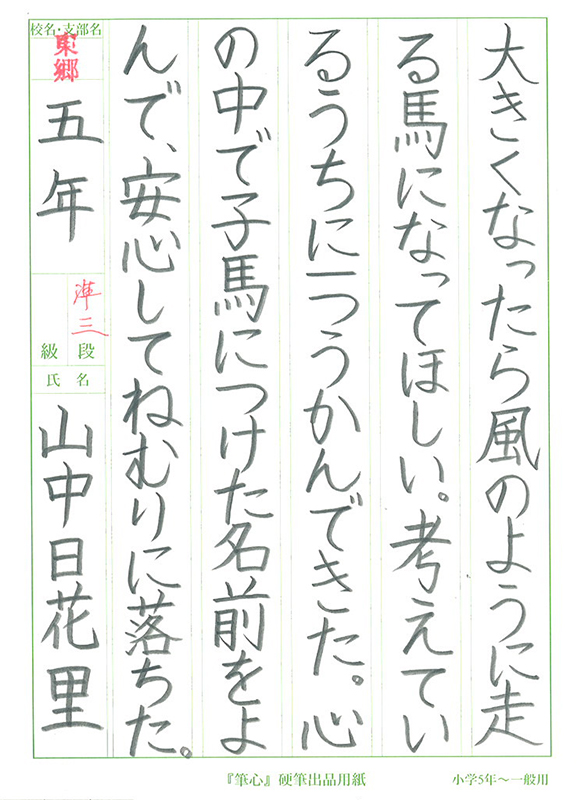 大きくなったら風のように走
る馬になってほしい。考えてい
るうちに一つうかんできた。心
の中で子馬につけた名前をよ
んで、安心してねむりに落ちた。
校名・支部名
東郷
五年
準三
級 段
氏 名
山中日花里
『筆心』硬筆出品用紙
小学5年～一般用